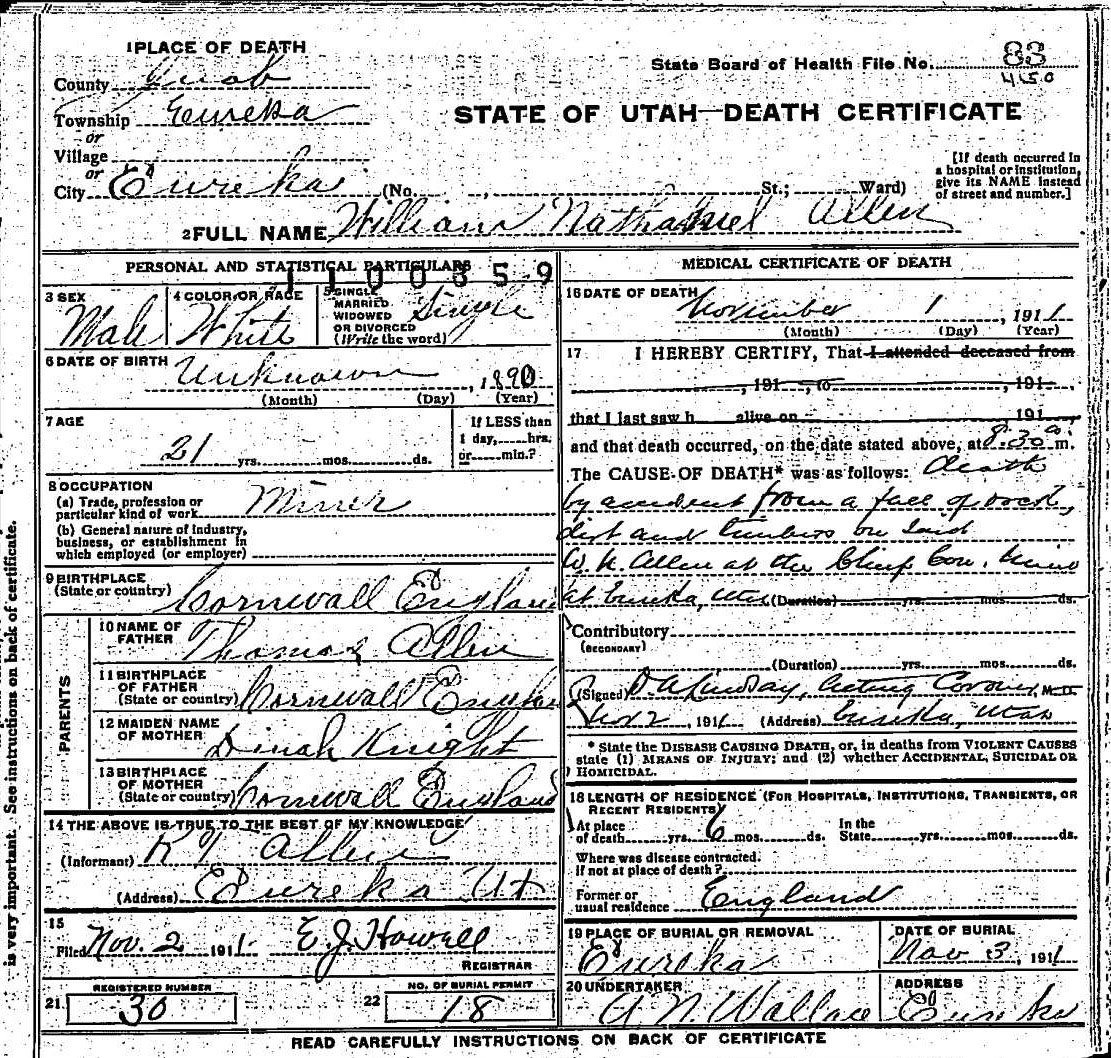 1 PLACE OF DEATH
County Juab
State Board of Health File No. 83
4150
Township Eureka
STATE OF UTAH—DEATH CERTIFICATE
or
Village
or
City Eureka (No. , St.; Ward)
[If death occurred in a hospital or institution, give its NAME instead of street and number.]
2 FULL NAME William Nathaniel Allen
PERSONAL AND STATISTICAL PARTICULARS
1100859
3 SEX Male
4 COLOR OR RACE White
5 SINGLE MARRIED WIDOWED OR DIVORCED (Write the word) Single
6 DATE OF BIRTH
Unknown , 1890
(Month) (Day) (Year)
7 AGE
21 yrs. mos. ds.
If LESS than 1 day, hrs. or min.?
8 OCCUPATION
(a) Trade, profession or particular kind of work Miner
(b) General nature of industry, business, or establishment in which employed (or employer)
9 BIRTHPLACE
(State or country) Cornwall England
PARENTS
10 NAME OF FATHER Thomas Allen
11 BIRTHPLACE OF FATHER (State or country) Cornwall England
12 MAIDEN NAME OF MOTHER Dinah Knight
13 BIRTHPLACE OF MOTHER (State or country) Cornwall England
14 THE ABOVE IS TRUE TO THE BEST OF MY KNOWLEDGE
(Informant) Allen
(Address) Eureka Ut
15
Filed Nov. 2 1911 E. J. Howell
REGISTRAR
21 REGISTERED NUMBER 30
22 NO. OF BURIAL PERMIT 18
MEDICAL CERTIFICATE OF DEATH
16 DATE OF DEATH
November 1 , 1911
(Month) (Day) (Year)
17 I HEREBY CERTIFY, That I attended deceased from
, 191 , to , 191
that I last saw h alive on 191
and that death occurred, on the date stated above, at 8:30 a. m.
The CAUSE OF DEATH* was as follows: death
by accident from a fall of rock,
dirt and timbers on said
W. N. Allen at the Chief Con. Mine
at Eureka, Utah (Duration) yrs. mos. ds.
Contributory
(SECONDARY)
(Duration) yrs. mos. ds.
(Signed) D A Lindsay, Acting Coroner, M. D.
Nov 2, 1911 (Address) Eureka, Utah
* State the DISEASE CAUSING DEATH, or, in deaths from VIOLENT CAUSES
state (1) MEANS OF INJURY; and (2) whether ACCIDENTAL, SUICIDAL OR
HOMICIDAL.
18 LENGTH OF RESIDENCE (FOR HOSPITALS, INSTITUTIONS, TRANSIENTS, OR
RECENT RESIDENTS)
At place of death yrs. 6 mos. ds. In the State yrs. mos. ds.
Where was disease contracted.
if not at place of death?
Former or usual residence England
19 PLACE OF BURIAL OR REMOVAL
Eureka
DATE OF BURIAL
Nov 3, 1911
20 UNDERTAKER
A. N. Wallace
ADDRESS
Eureka
READ CAREFULLY INSTRUCTIONS ON BACK OF CERTIFICATE
is very important. See instructions on back of certificate.